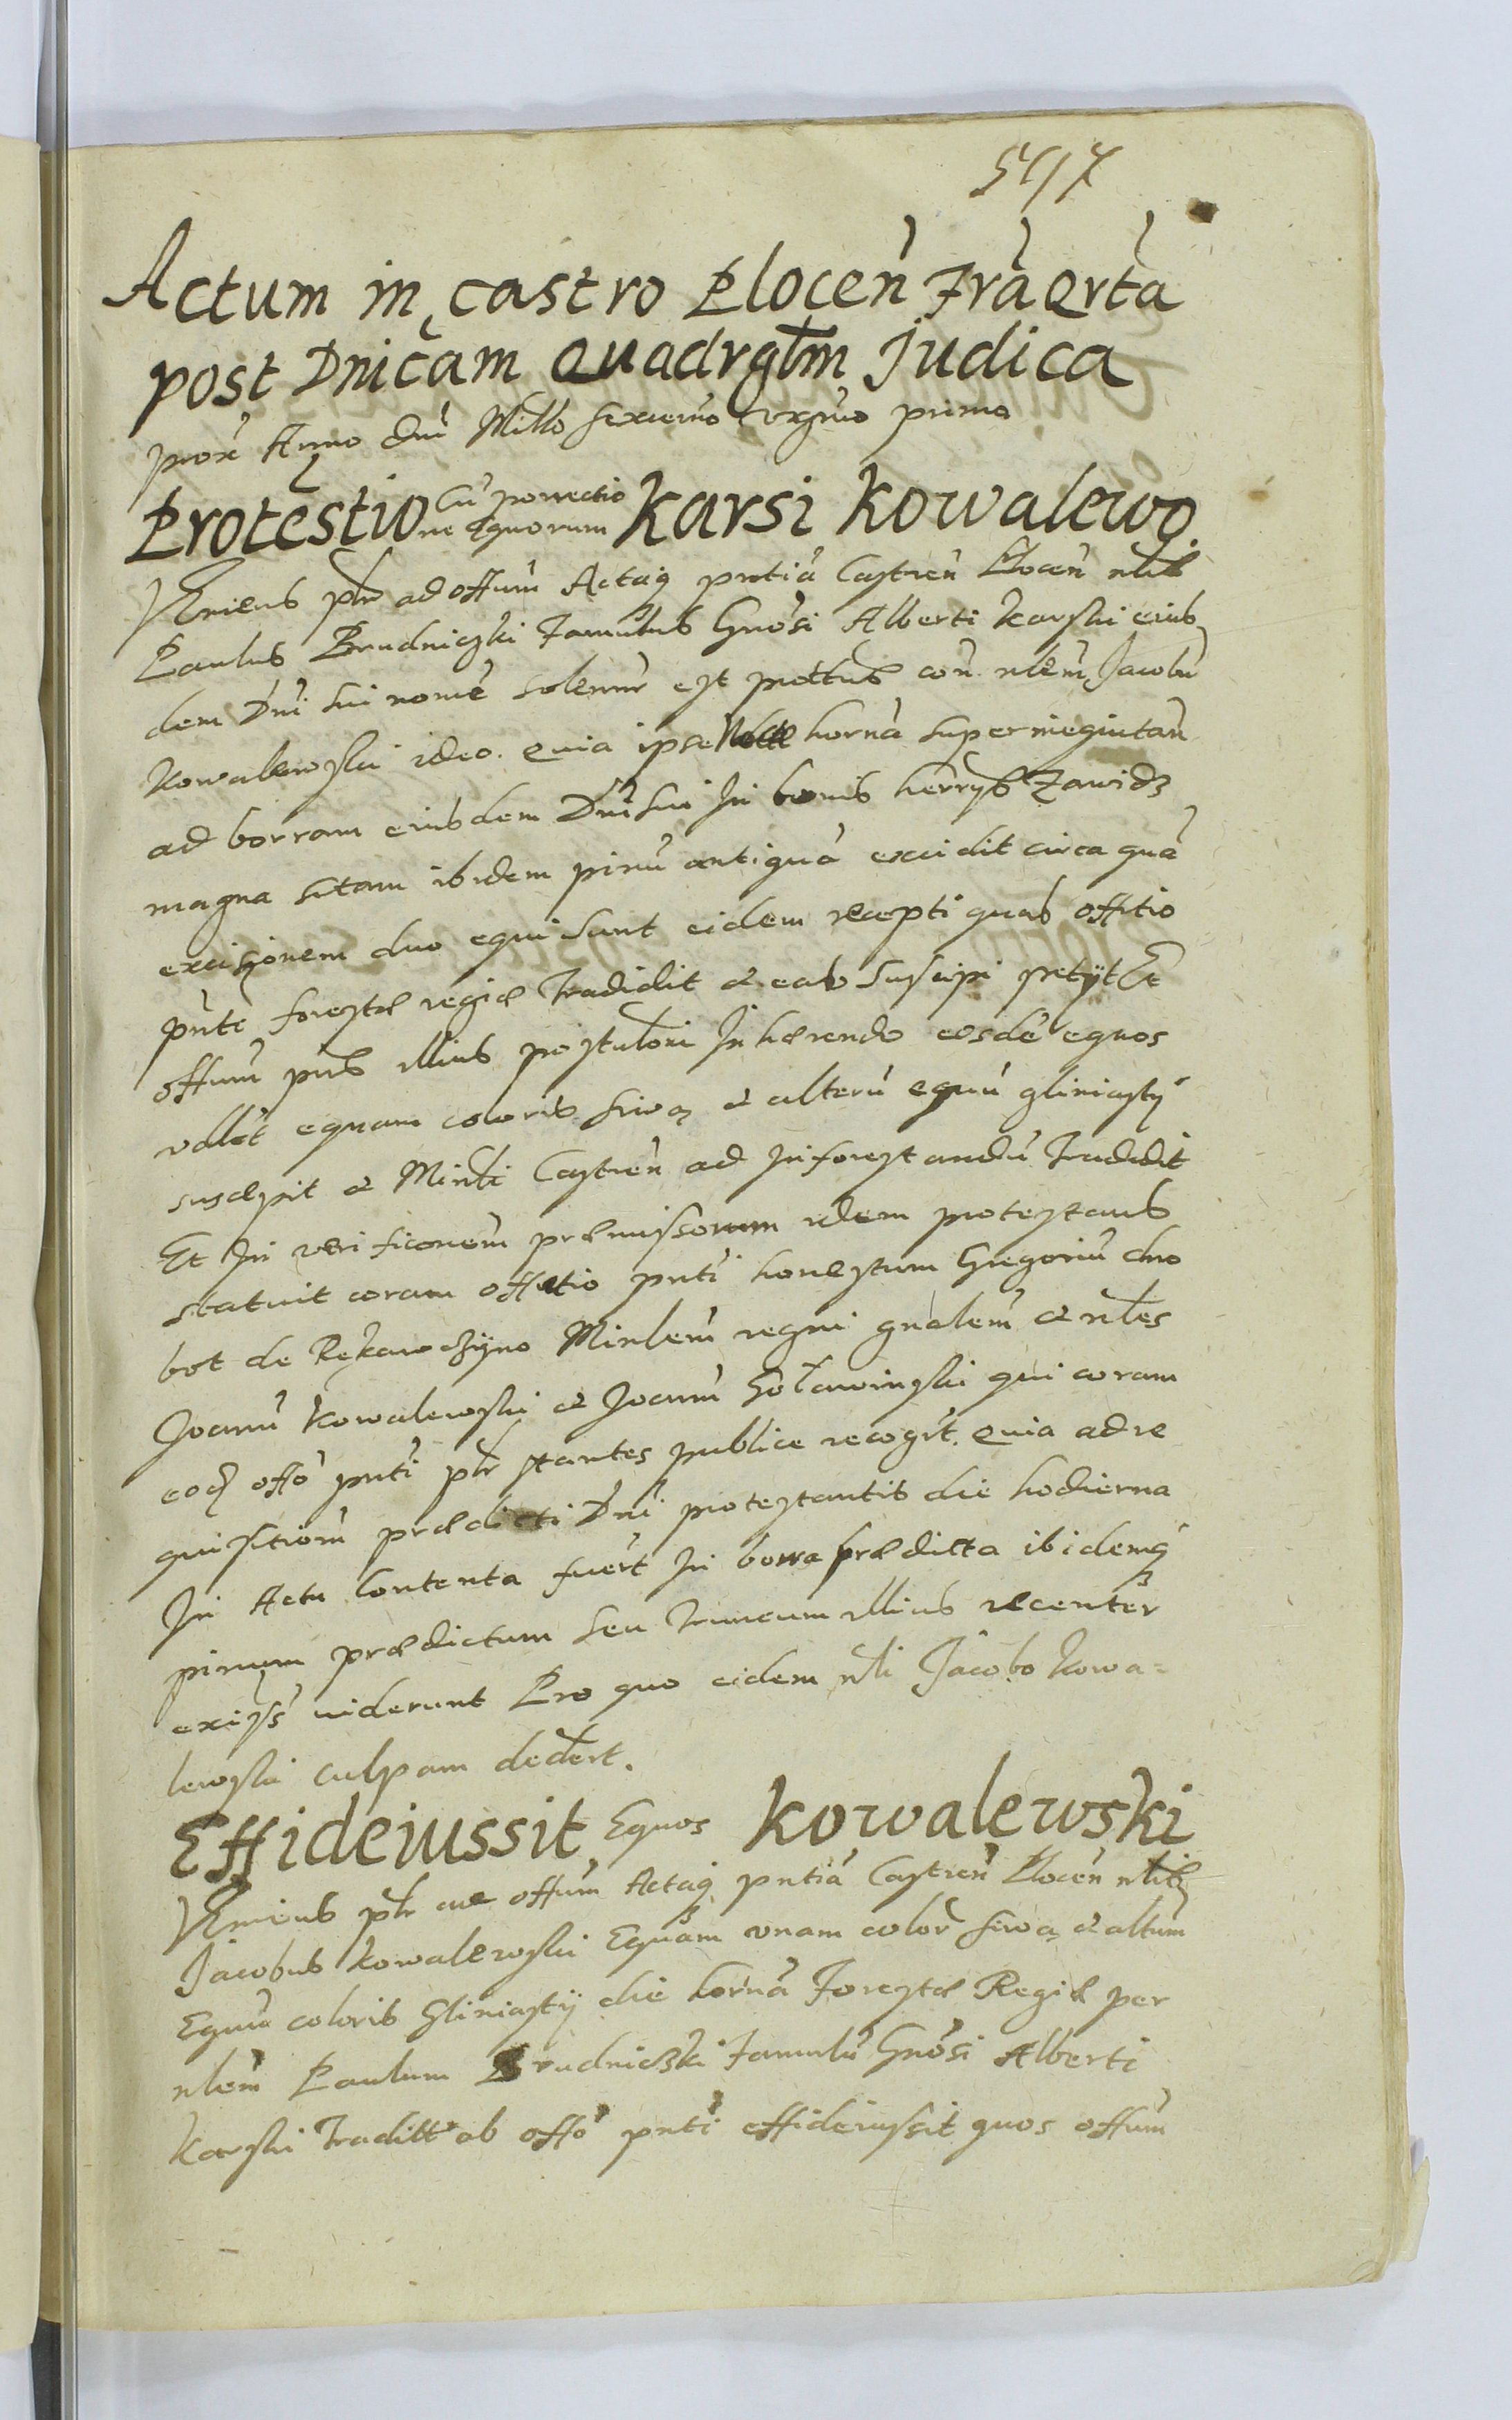 517
Actum in castro Plocen̄ Fra Qrta
post Dnicam Quadrgtm Judica
prox Anno Dni Millo sexcemo vigmo primo
Protestio Cu porrectio
ne Equorum Karsi Kowalewo
Veniens plr ad offum Actaq pntia Castren Plocen nlis
Paulus Brudniczki Famulus Gnosi Alberti Karski eius
dem Dni sui nomē solennr est prottus con nlem Jacobu
Kowalewski ideo. Quia ipse horna superinequitan
ad borram eiusdem Dni sui In bonis herrys Zawidz
magna sitam ibidem pinu antiqua excidit circa qua
excisionem duo equi sunt eidem recepti quas offitio
pnte forestae regiae Tradidit et eas suscipi petyt Et
offum pns illius postuloni Inhaerendo eosdē equos
vdlt equam coloris siwą et alterū equū gliniasty
suscepit et Minli Castren ad Inforestandū Tradidit
Et In verificonem praemissorum idem protestans
statuit coram offitio pnti honestum Gregoriū cho
bot de Rękawczyno Minlem regni gnalem et nles
Joannu Kowalewski et Joannu Goławinski qui coram
eod offo pnti plr stantes publice recogrt. Quia ad re
quisitiom praedicti Dni protestantis die hodierna
In Actu Contenta fuert In borra praedicta ibidemq
pinum praedictum seu Truncum illius recenter
exciss viderunt Pro quo eidem nli Jacobo Kowa=
lewski culpam dedert.
Effideiussit Equos Kowalewski
Veniens plr ad offum Actaq pntia Castren Plocen nlis
Jacobus Kowalewski Equam unam color siwą et altum
Equu coloris Gliniasty die horna Forestae Regiae per
nlem Paulum Brudniczki Famulū Gnosi Alberti
Karski Traditt ab offo pnti effideiussit quos offum